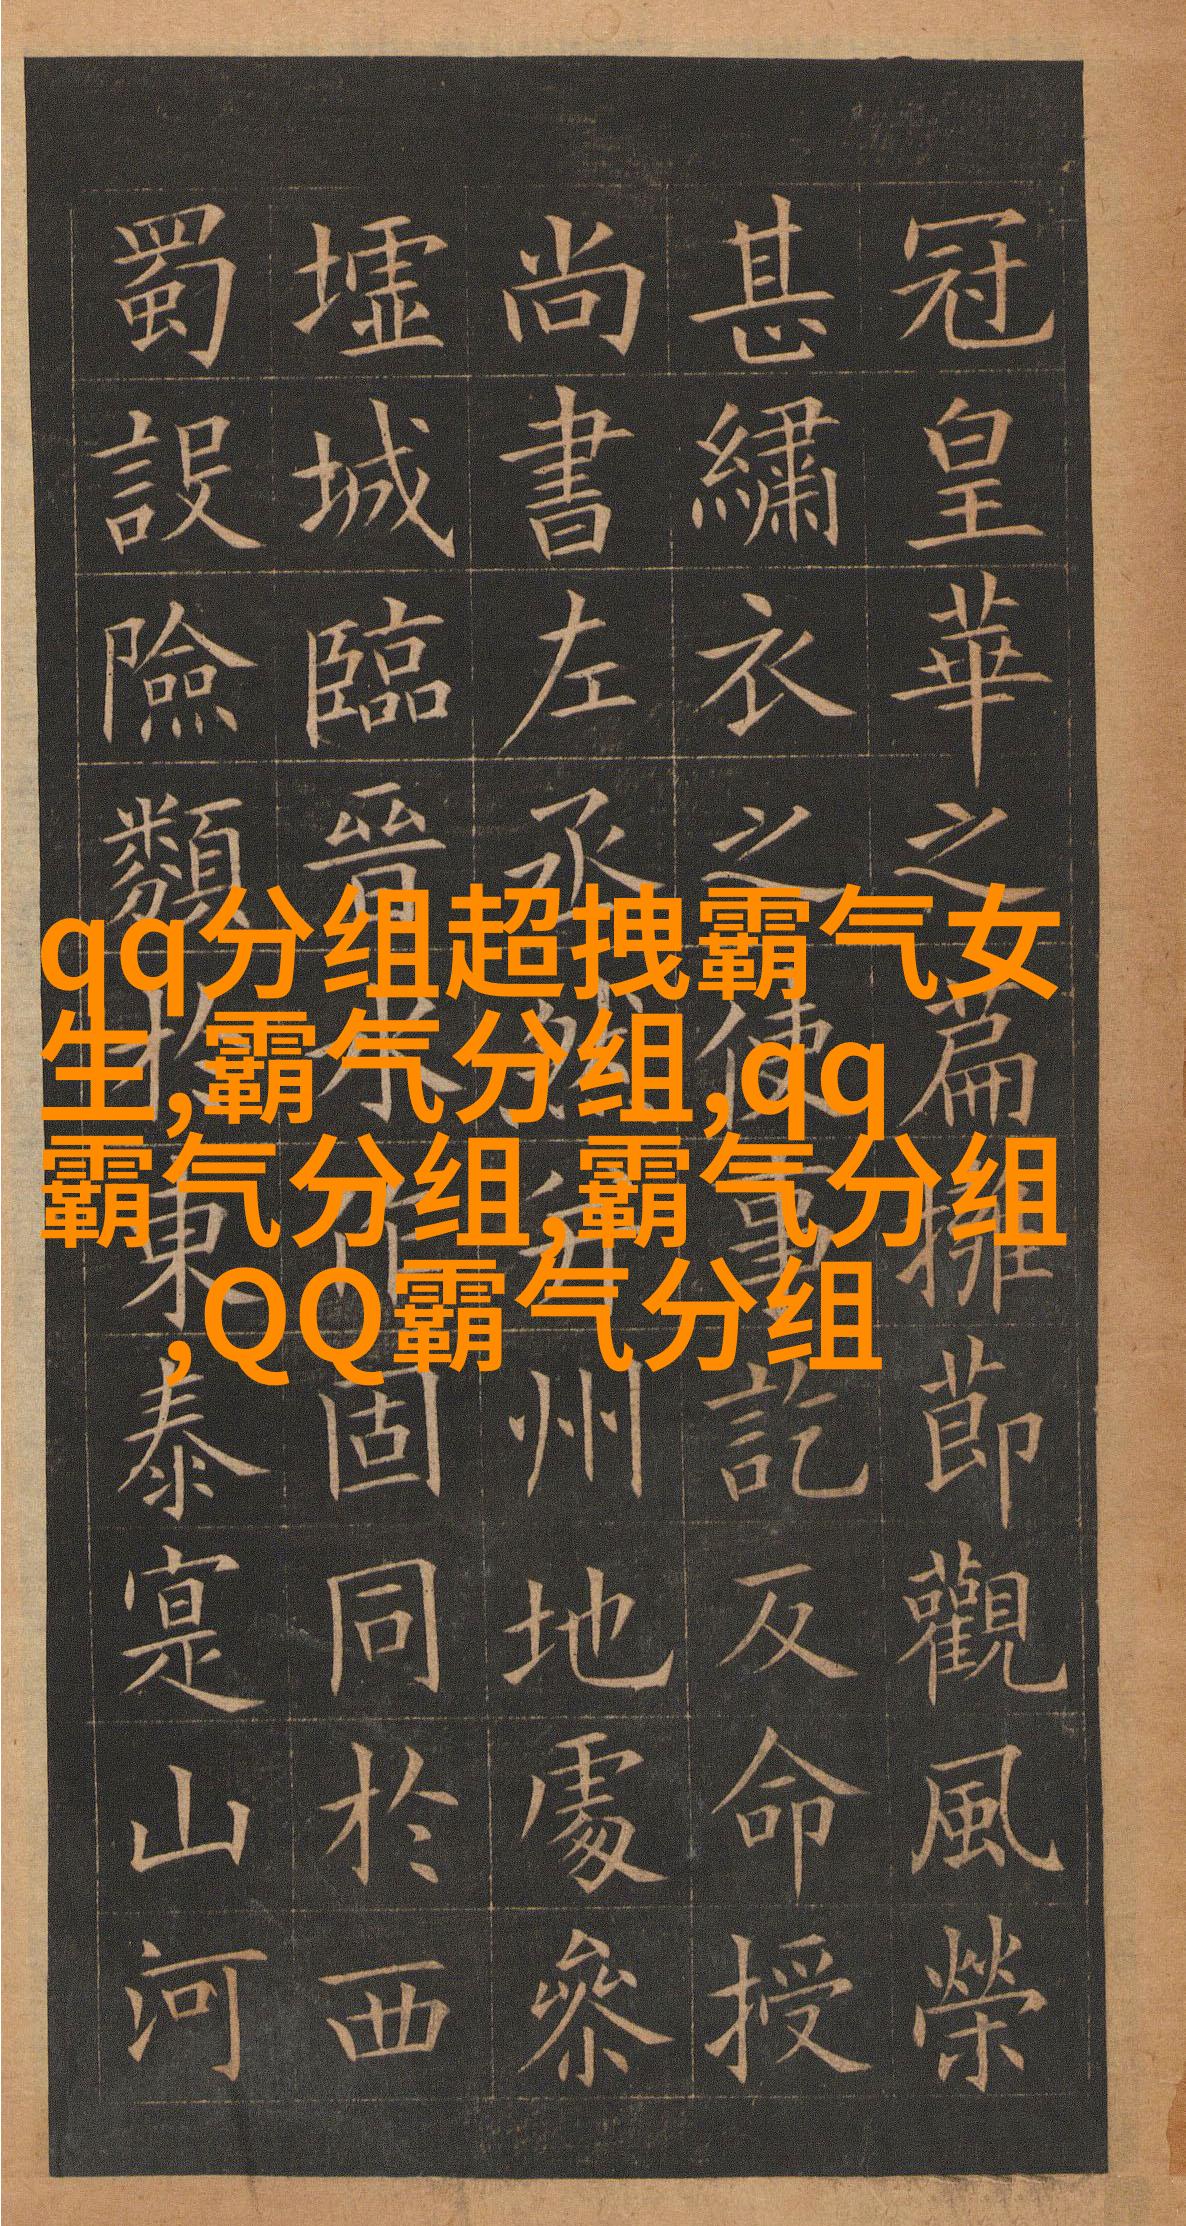 冠皇華之篇擁節觀風榮
甚繡衣之使事訖反命授
尚書左丞然并州地處參
墟城臨晉水作固同於西
蜀設險類於東泰寔山河
qq分组超拽霸气女
生,霸气分组,qq
霸气分组,霸气分组
,QQ霸气分组